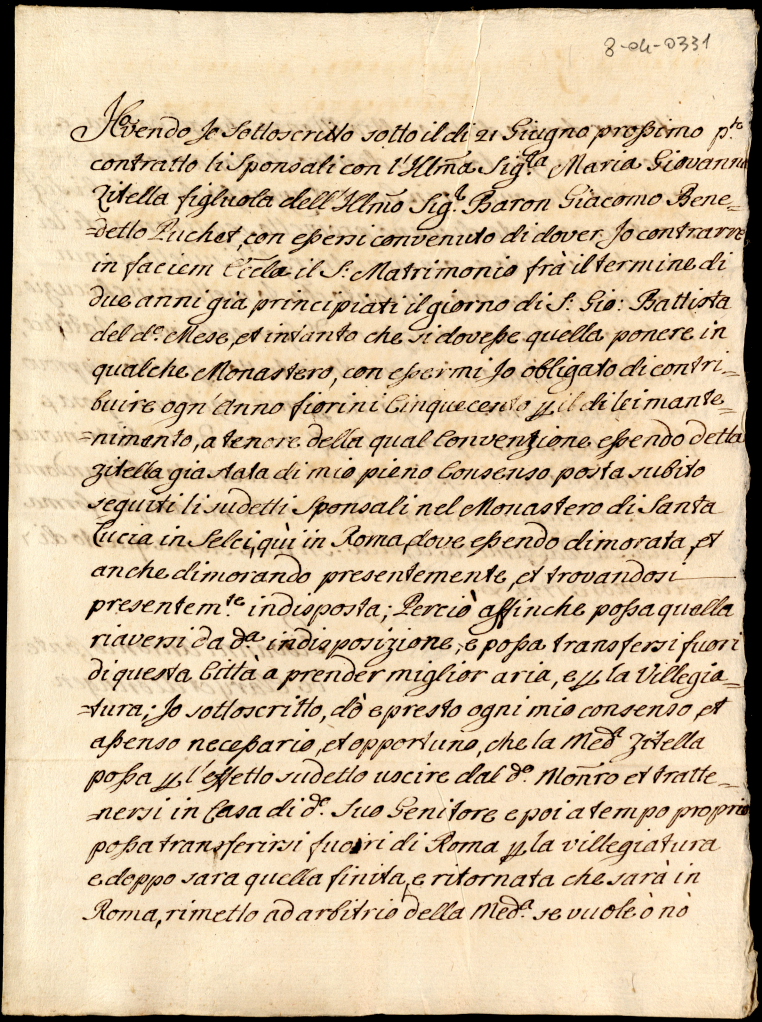 8-04-0331
Havendo Jo Sottoscritto sotto il di 21 Giugno prossimo p.to
contratto li Sponsali con l'Ill̃ma Sig.ra Maria Giovanna
Zitella figluola dell'Ill̃mo Sig.r Baron Giacomo Bene=
=detto Puchet, con essersi convenuto di dover Jo contrarre
in faciem Eccla il S. Matrimonio frà il termine di
due anni già principiati il giorno di S. Gio: Battista
del d.o Mese, et intanto che si dovesse quella ponere in
qualche Monastero, con essermi Jo obligato di contri=
buire ogn'Anno fiorini Cinquecento ꝑ il di lei mante=
=nimento, a tenore della qual Convenzione essendo detta
zitella già stata di mio pieno Consenso posta subito
seguiti li sudetti Sponsali nel Monastero di Santa
Lucia in Selci, qùi in Roma, dove essendo dimorata, et
anche dimorando presentemente, et trovandosi
presentem.te indisposta; Perciò affinche possa quella
riaversi da d.a indisposizione, e possa transfersi fuori
di questa Città a prender miglior aria, e ꝑ la Villegia=
=tura; Jo sottoscritto, dò e presto ogni mio consenso, et
assenso necessario, et opportuno, che la Med.a Zitella
possa ꝑ l'effetto sudetto uscire dal d.o Moñro et tratte=
=nersi in Casa di d.o Suo Genitore e poi a tempo proprio
possa transferirsi fuori di Roma ꝑ la villegiatura
e doppo sara quella finita, e ritornata che sarà in
Roma, rimetto ad arbitrio della Med.a se vuole ò nò